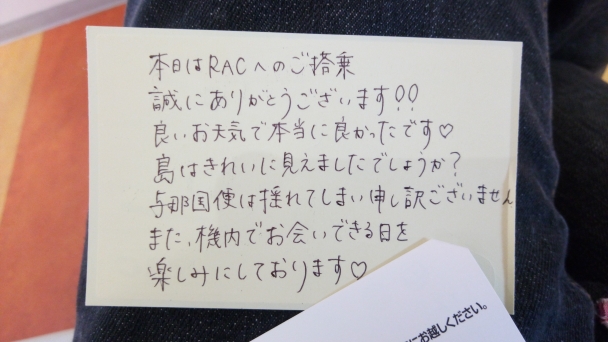 本日はRACへのご搭乗
誠にありがとうございます!!
良いお天気で本当に良かったです♡
島はきれいに見えましたでしょうか?
与那国便は揺れてしまい申し訳ございません
また、機内でお会いできる日を
楽しみにしております♡
にお越しください。